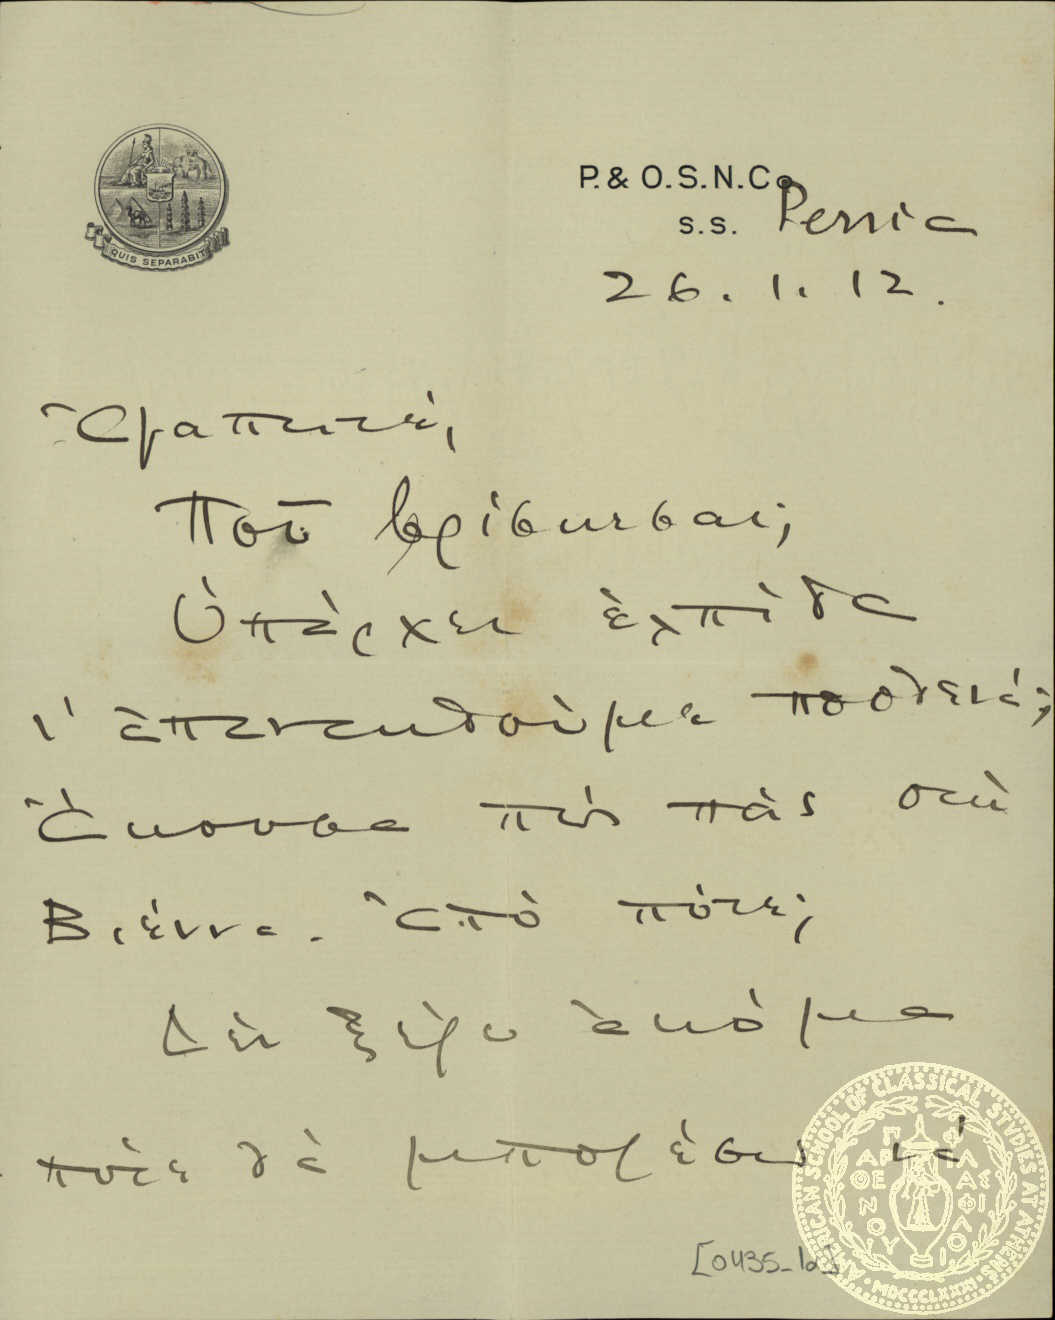 QUIS SEPARABIT
P. & O. S. N. Co
S.S. Persia
26. 1. 12.
Ἀγαπητέ,
Ποῦ βρίσκεσαι;
Ὑπάρχει ἐλπίδα
ν' ἀπαντηθοῦμε πουθενά;
Ἄκουσα πῶς πᾶς στὴ
Βιέννα. Ἀπὸ πότε;
Δὲν ξέρω ἀκόμα
πότε θὰ μπορέσω νὰ
[0435_1a]
AMERICAN SCHOOL OF CLASSICAL STUDIES AT ATHENS
MDCCCLXXXI
ΠΑΡΘΕΝΟΥ ΦΙΛΑΣ ΦΙΛΟΙ